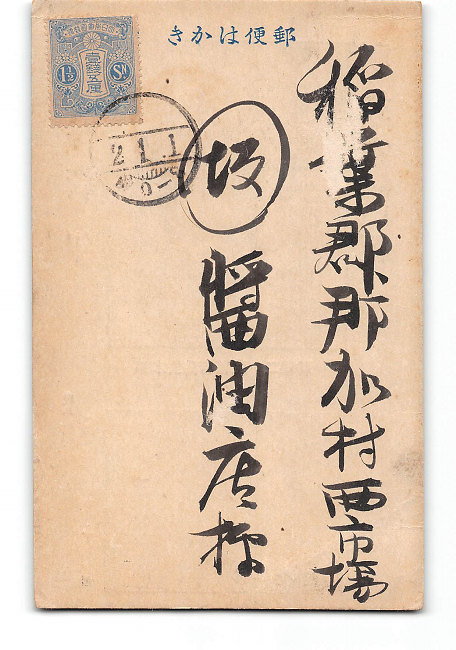 郵便はかき
稲葉郡那加村西市場
坂
醤油店様
壹錢五厘
1½ Sn
2.1.1